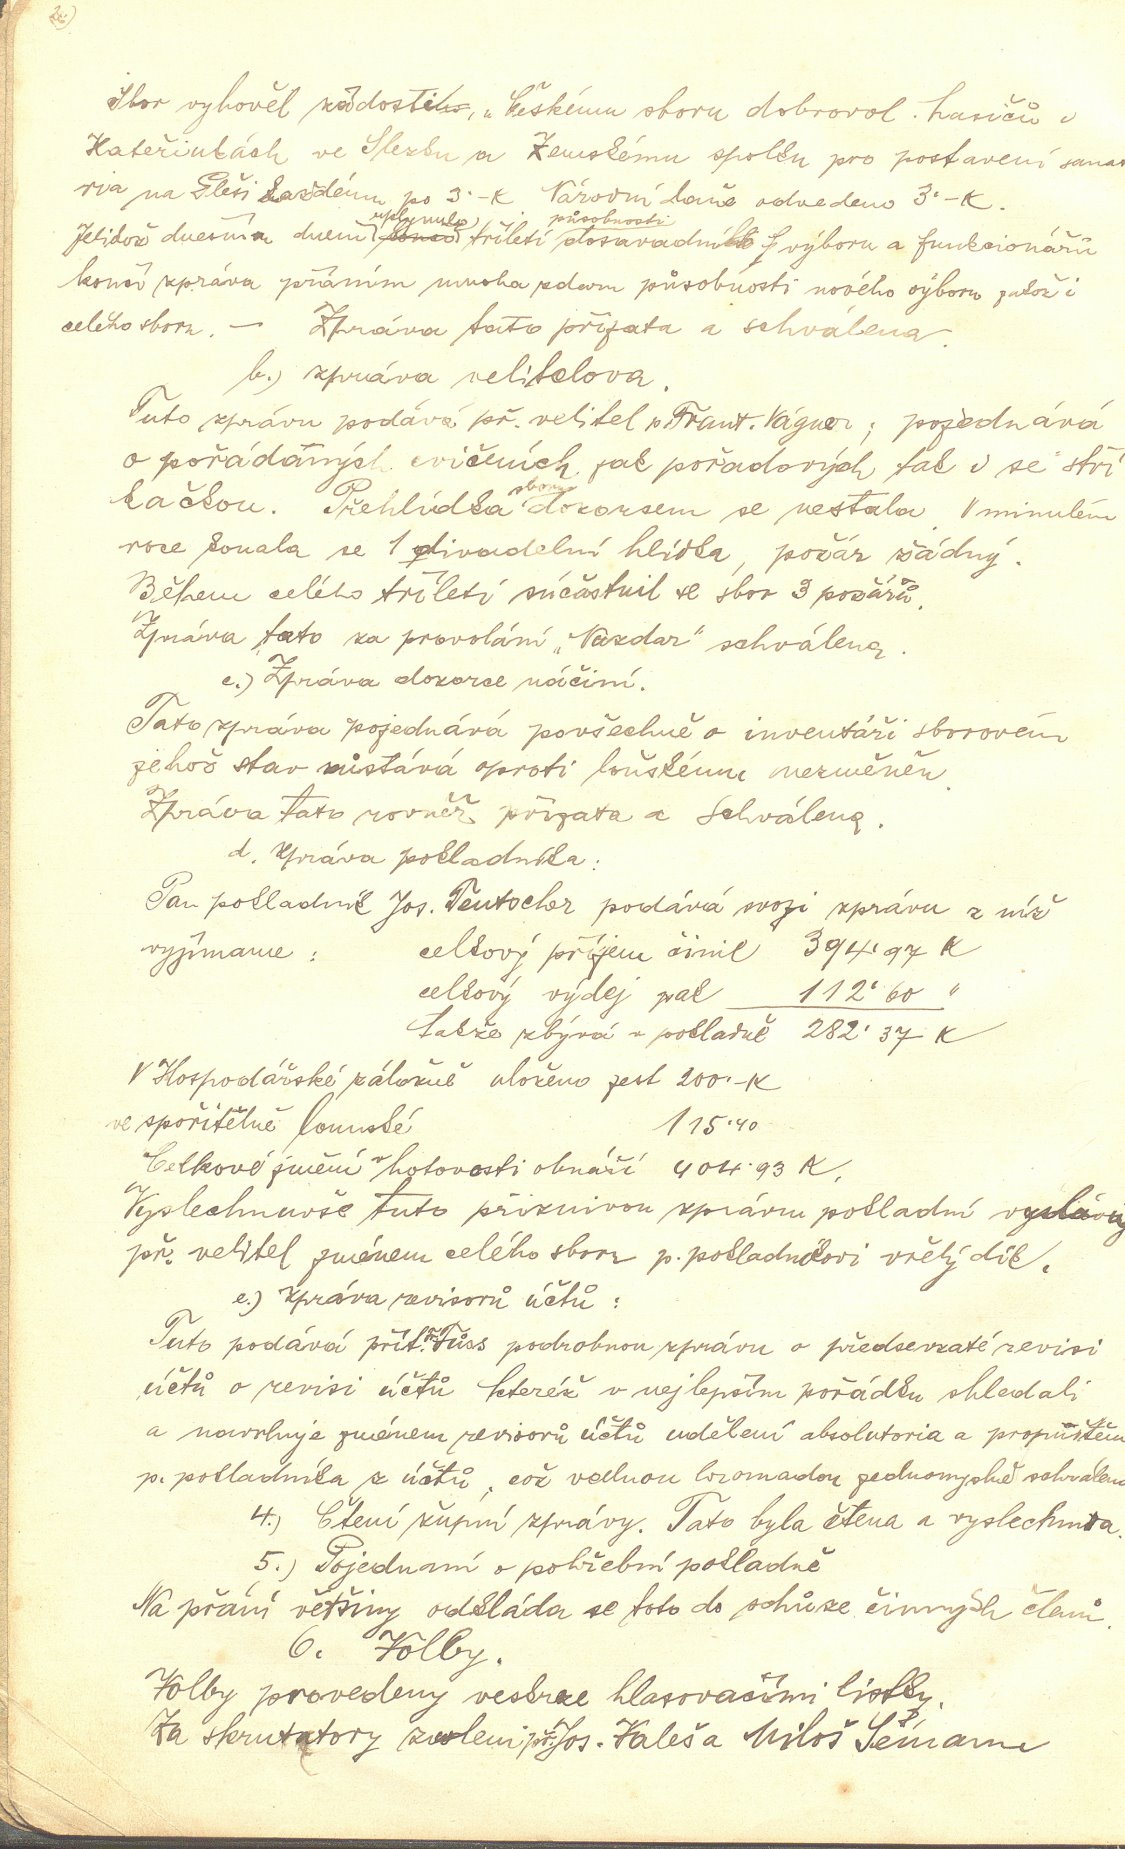 Sbor vyhověl žádostem, „Českému sboru dobrovol. hasičů v
Kateřinkách ve Slezku a Zemskému spolku pro postavení sana
ria na Pleši každému po 3·–K Národní daně odvedeno 3·–K.
uplynulo působnosti
Jelikož dnešním dnem končí tříletí dosavadního výboru a funkcionářů
končí zpráva přáním mnoha zdaru působnosti nového výboru jakož i
celého sboru. — Zpráva tato přijata a schválena.
b.) zpráva velitelova.
Tuto zprávu podává př. velitel p. Frant. Vágner; pojednává
o pořádaných cvičeních jak pořadových tak i se stří
kačkou. Přehlídka sboru dozorcem se nestala. V minulém
roce konala se 1 divadelní hlídka, požár žádný.
Během celého tříletí súčastnil se sbor 3 požárů.
Zpráva tato za provolání „Nazdar“ schválena.
c.) Zpráva dozorce náčiní.
Tato zpráva pojednává povšechně o inventáři sborovém
jehož stav zůstává oproti loňskému nezměněn.
Zpráva tato rovněž přijata a schválena.
d. zpráva pokladníka:
Pan pokladník Jos. Teutscher podává svoji zprávu z níž
vyjímáme: celkový příjem činil 394·97 K
celkový výdej pak 112·60 „
takže zbývá v pokladně 282·37 K
V Hospodářské záložně uloženo jest 200·–K
ve spořitelně lounské 115·40
Celkové jmění v hotovosti obnáší 404·93 K.
Vyslechnuvše tuto příznivou zprávu pokladní vyslovuje
př. velitel jménem celého sboru p. pokladníkovi vřelý dík.
e.) zpráva revisorů účtů:
Tuto podává přít. Fr. Fůss podrobnou zprávu o předsevzaté revisi
účtů o revisi účtů kteréž v nejlepším pořádku shledali
a navrhuje jménem revisorů účtů udělení absolutoria a propuštění
p. pokladníka z účtů, což valnou hromadou jednomyslně schváleno
4.) Čtení župní zprávy. Tato byla čtena a vyslechnuta.
5.) Pojednaní o pohřební pokladně
Na přání většiny odkládá se toto do schůze činných členů.
6. Volby.
Volby provedeny veskrze hlasovacími lístky.
Za skrutatory zvoleni př. Jos. Valeš a Miloš Šemam